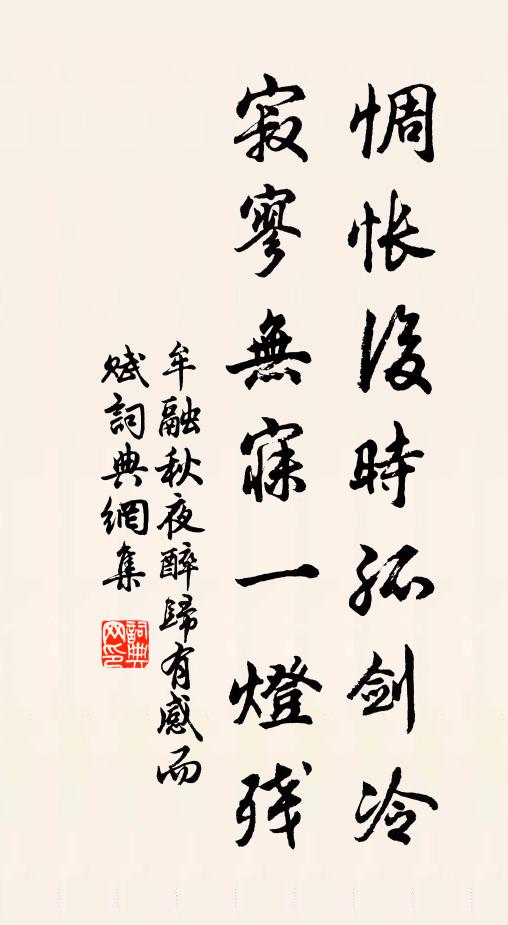 惆怅後時孤剑冷
寂寥無寐一燈残
牟融秋夜醉歸有感而
赋詞典網集
詞典网印